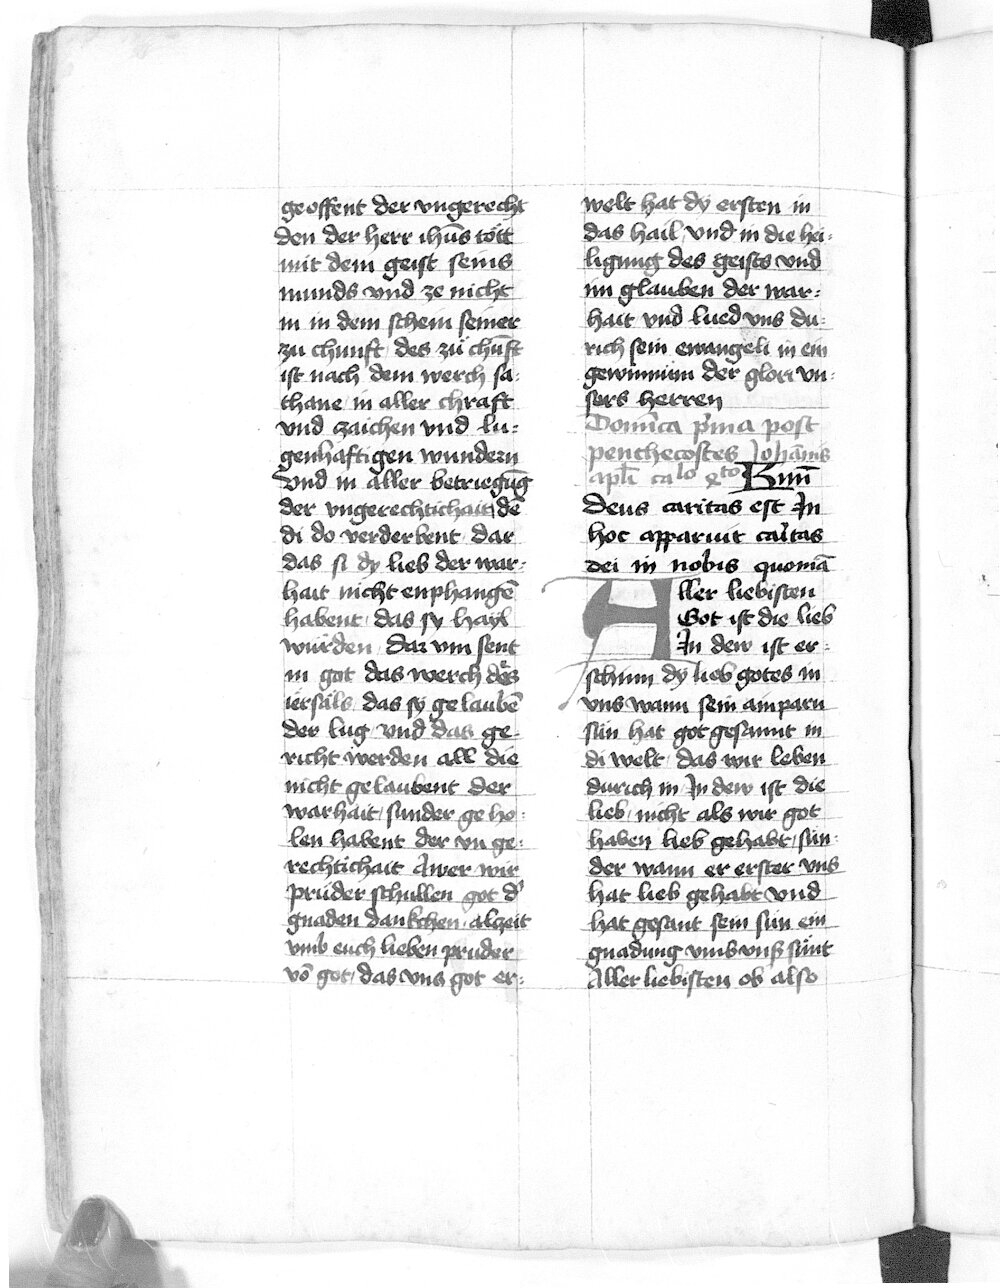 geoffent der vngerecht
den der herr ihūs tött
mit dem geist seins
munds vnd ze nicht
in in dem schein seiner
zu chunft des zů chūft
ist nach dem werch sa:
thane in aller chraft
vnd zaichen vnd lu:
genhaftigen wundern
vnd in aller betriegūg
der vngerechtichait de
di do verderbent dar
das si dy lieb der war:
hait nicht enphangē
habent das sy hayl
würden dar vm sent
in got das werch des
iersals das sy gelaubē
der lug vnd das ge:
richt werden all die
nicht gelaubent der
warhait sunder geho:
len habent der vn ge:
rechtichait Awer wir
prüder schullen got d'
gnaden dankchen alczeit
vmb euch lieben prüder
vō got das vns got er:
welt hat dy ersten in
das hail vnd in die hei:
ligung des geists vnd
im glauben der war:
hait vnd lued vns du:
rich sein ewangeli in ein
gewinnüm der glori vn:
sers herren
Domīca p'ma post
penthecostes Johānis
apl'i ca^lo q^to Kmī
Deus caritas est In
hoc apparuit caritas
dei in nobis quoniā
Aller liebisten
Got ist die lieb
In dew ist er:
schinn dy lieb gotes in
vns wann sein ainparn
sün hat got gesannt in
di welt das wir leben
durich in In dew ist die
lieb nicht als wir got
haben lieb gehabt sün:
der wann er erster vns
hat lieb gehabt vnd
hat gesant sein sün ein
gnadung vmb vnß sünt
Aller liebisten ob also